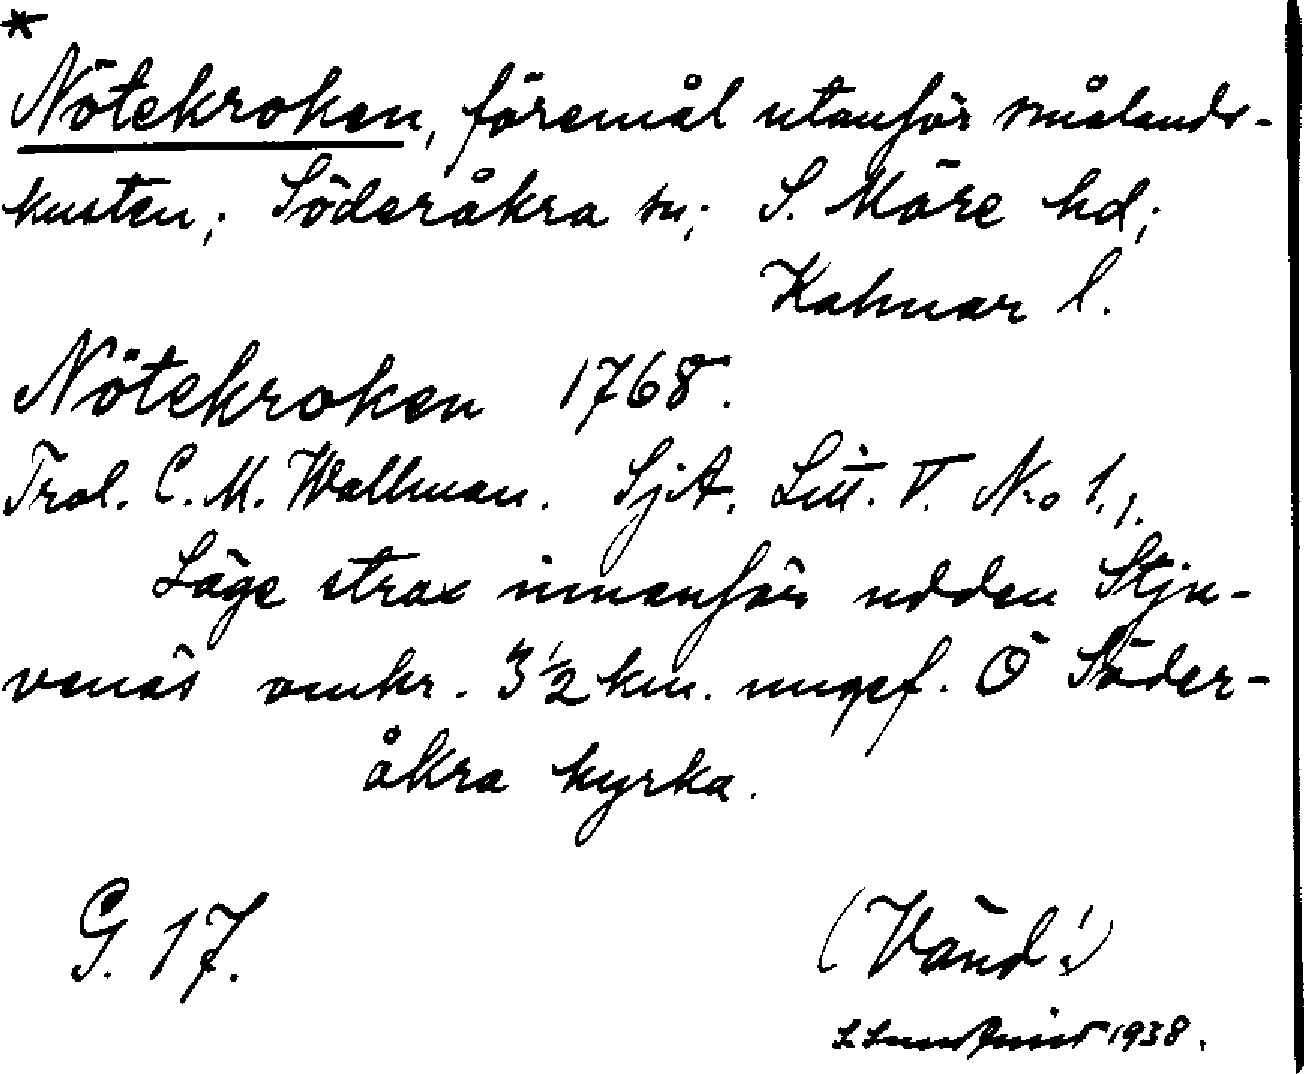 *
Nötekroken, föremål utanför smålands-
kusten; Söderåkra sn; S. Möre hd;
Kalmar l.
Nötekroken 1768.
Trol. C. M. Wallman. SjA. Litt. V. No 1.,.
Läge strax innanför udden Stju-
venäs omkr. 3 1/2 km. ungef. Ö Söder-
åkra kyrka.
G. 17.
(Vänd!)
1938.